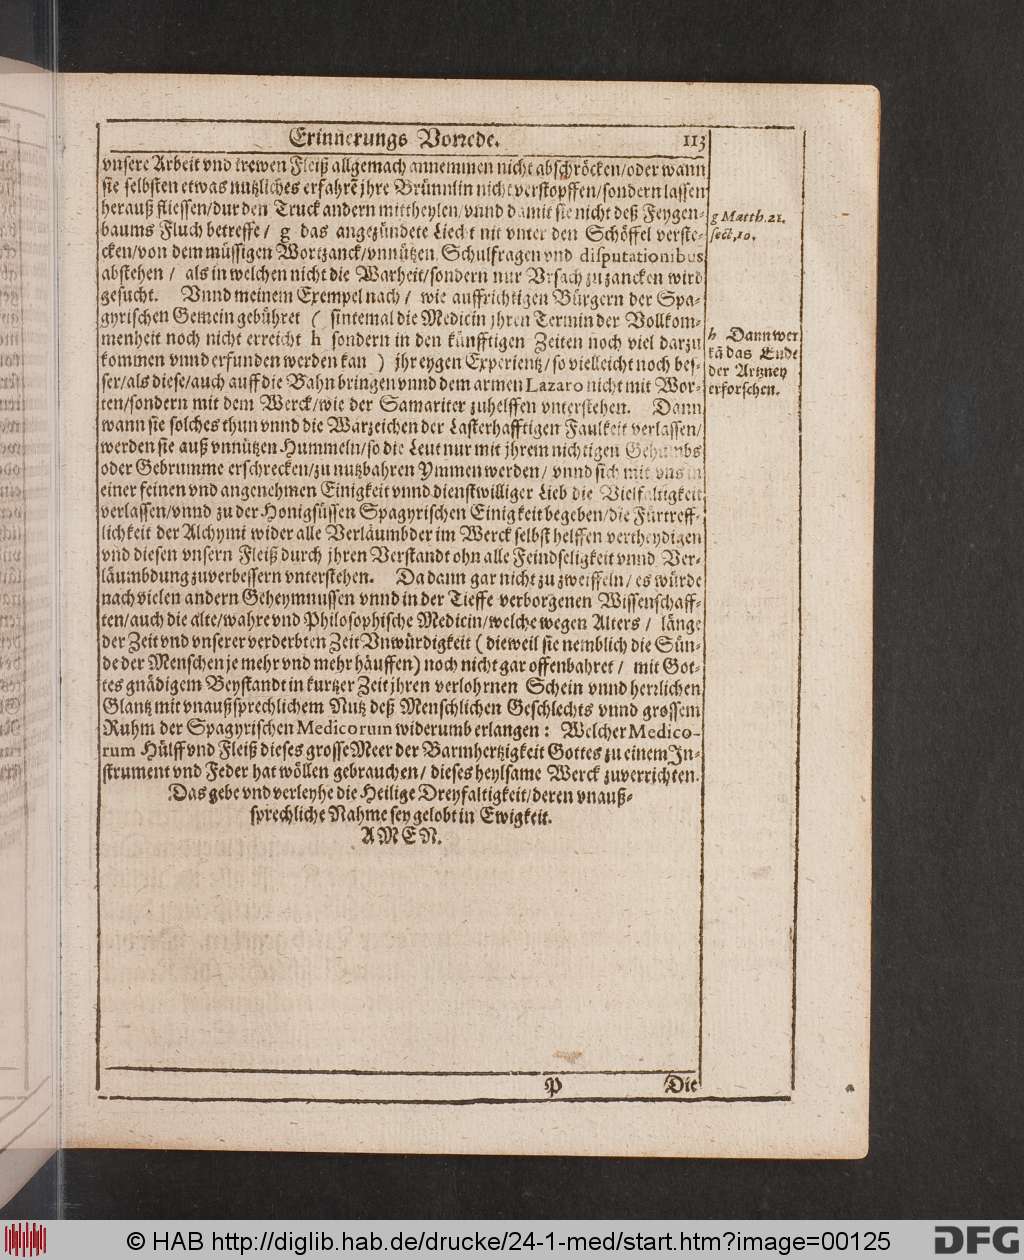 Erinnerungs Vorrede. 113
vnsere Arbeit vnd trewen Fleiß allgemach annemmen nicht abschröcken/oder wann
sie selbsten etwas nutzliches erfahrẽ jhre Brünnlin nicht verstopffen/sondern lassen
herauß fliessen/dur den Truck andern mittheylen/vnnd damit sie nicht deß Feygen-
baums Fluch betreffe/ g das angezündete Liecht nit vnter den Schöffel verste-
cken/von dem müssigen Wortzanck/vnnützen Schulfragen vnd disputationibus
abstehen / als in welchen nicht die Warheit/sondern nur Vrsach zu zancken wird
gesucht. Vnnd meinem Exempel nach / wie auffrichtigen Bürgern der Spa-
gyrischen Gemein gebühret ( sintemal die Medicin jhren Termin der Vollkom-
menheit noch nicht erreicht h sondern in den künfftigen Zeiten noch viel darzu
kommen vnnd erfunden werden kan ) jhr eygen Experientz/so vielleicht noch bes-
ser/als diese/auch auff die Bahn bringen vnnd dem armen Lazaro nicht mit Wor-
ten/sondern mit dem Werck/wie der Samariter zuhelffen vnterstehen. Dann
wann sie solches thun vnnd die Warzeichen der Lasterhafftigen Faulkeit verlassen/
werden sie auß vnnützen Hummeln/so die Leut nur mit jhrem nichtigen Gehumbs
oder Gebrumme erschrecken/zu nutzbahren Ymmen werden/ vnnd sich mit vns in
einer feinen vnd angenehmen Einigkeit vnnd dienstwilliger Lieb die Vielfaltigkeit
verlassen/vnnd zu der Honigsüssen Spagyrischen Einigkeit begeben/die Fürtreff-
lichkeit der Alchymi wider alle Verläumbder im Werck selbst helffen vertheydigen
vnd diesen vnsern Fleiß durch jhren Verstandt ohn alle Feindseligkeit vnnd Ver-
läumbdung zuverbessern vnterstehen. Da dann gar nicht zu zweiffeln/ es würde
nach vielen andern Geheymnussen vnnd in der Tieffe verborgenen Wissenschaff-
ten/auch die alte/wahre vnd Philosophische Medicin/welche wegen Alters / länge
der Zeit vnd vnserer verderbten Zeit Vnwürdigkeit ( dieweil sie nemblich die Sün-
de der Menschen je mehr vnd mehr häuffen) noch nicht gar offenbahret / mit Got-
tes gnädigem Beystandt in kurtzer Zeit jhren verlohrnen Schein vnnd herrlichen
Glantz mit vnaußsprechlichem Nutz deß Menschlichen Geschlechts vnnd grossem
Ruhm der Spagyrischen Medicorum widerumb erlangen: Welcher Medico-
rum Hülff vnd Fleiß dieses grosse Meer der Barmhertzigkeit Gottes zu einem In-
strument vnd Feder hat wöllen gebrauchen/ dieses heylsame Werck zuverrichten.
Das gebe vnd verleyhe die Heilige Dreyfaltigkeit/deren vnauß-
sprechliche Nahme sey gelobt in Ewigkeit.
AMEN.
g Matth. 21.
sect. 10.
h Dann wer
kã das Ende
der Artzney
erforschen.
P Die
© HAB http://diglib.hab.de/drucke/24-1-med/start.htm?image=00125
DFG